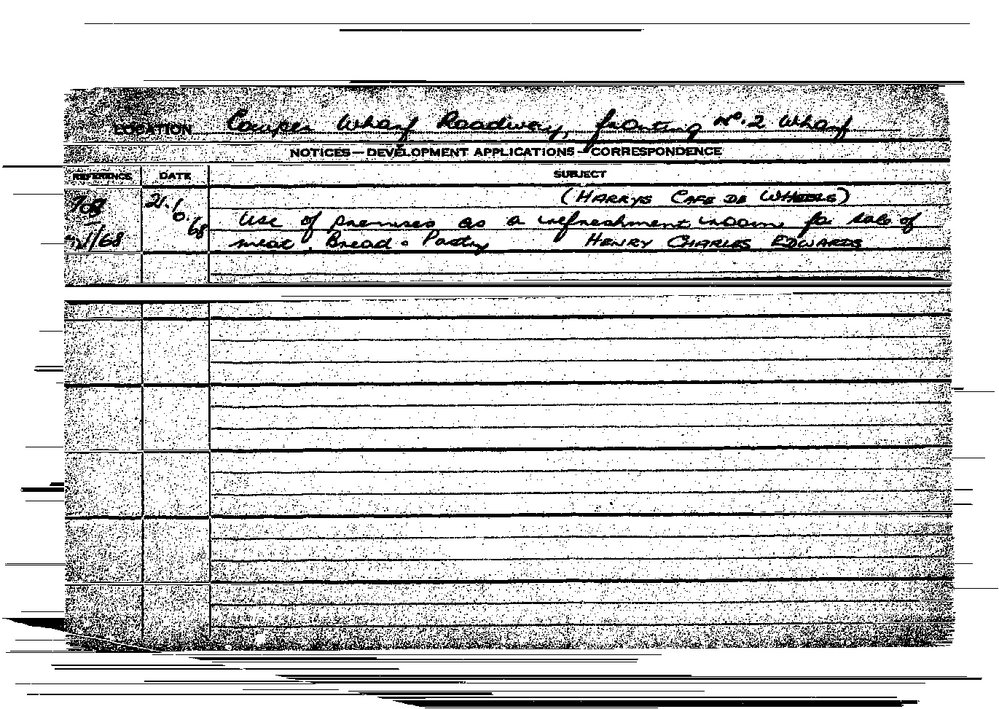 LOCATION Cowper Wharf Roadway, fronting No. 2 Wharf
NOTICES—DEVELOPMENT APPLICATIONS—CORRESPONDENCE
REFERENCE DATE SUBJECT
21.6.68 (HARRYS CAFE DE WHEELS)
Use of premises as a refreshment room for sale of
/68 meat, Bread & Pastry HENRY CHARLES EDWARDS